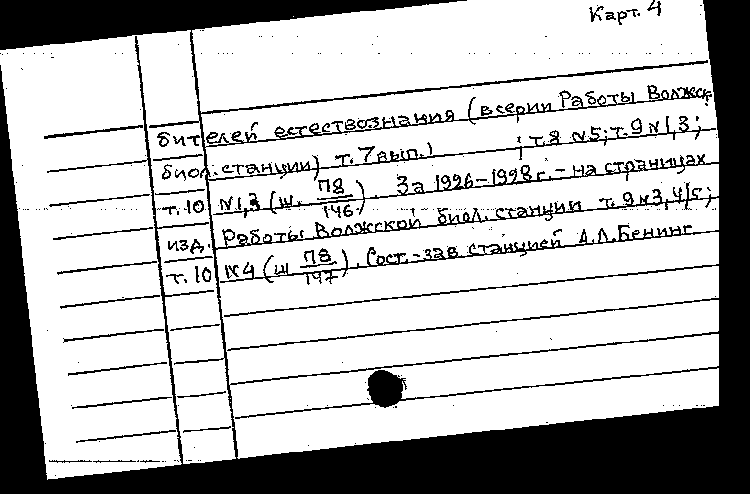 Карт. 4
бителей естествознания (в серии Работы Волжск.
биол. станции) т. 7 вып. 1 ; т. 8 №5; т. 9 №1,3;
т. 10 №1,3 (ш. П8/146). За 1926-1928 г. - на страницах
изд. Работы Волжской биол. станции т. 9 №3,4/5;
т. 10 №4 (ш П8/147). Сост. - зав станцией А.Л. Бенинг